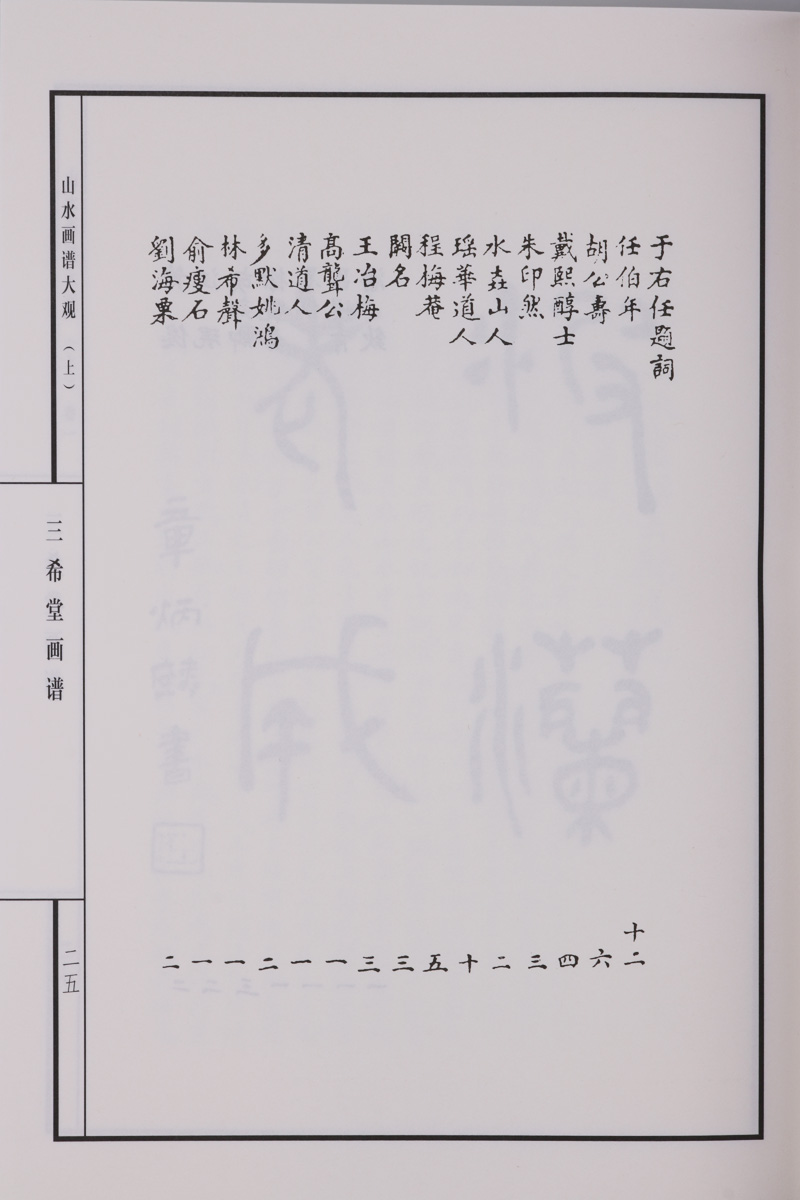 于右任題詞
任伯年 十二
胡公壽 六
戴熙醇士 四
朱印然 三
水垚山人 二
瑶華道人 十
程梅菴 五
闕名 三
王冶梅 三
高龔公 一
清道人 一
多默姚鴻 二
林希聲 一
俞瘦石 一
劉海粟 二
山水画谱大观（上）
三希堂画谱
二五